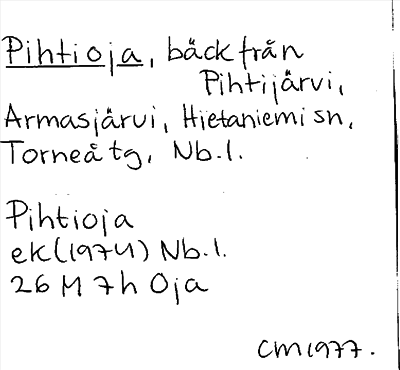 Pihtioja, bäck från
Pihtijärvi,
Armasjärvi, Hietaniemi sn,
Torneå tg, Nb.l.
Pihtioja
ek (1974) Nb.l.
26 M 7h Oja
CM 1977.